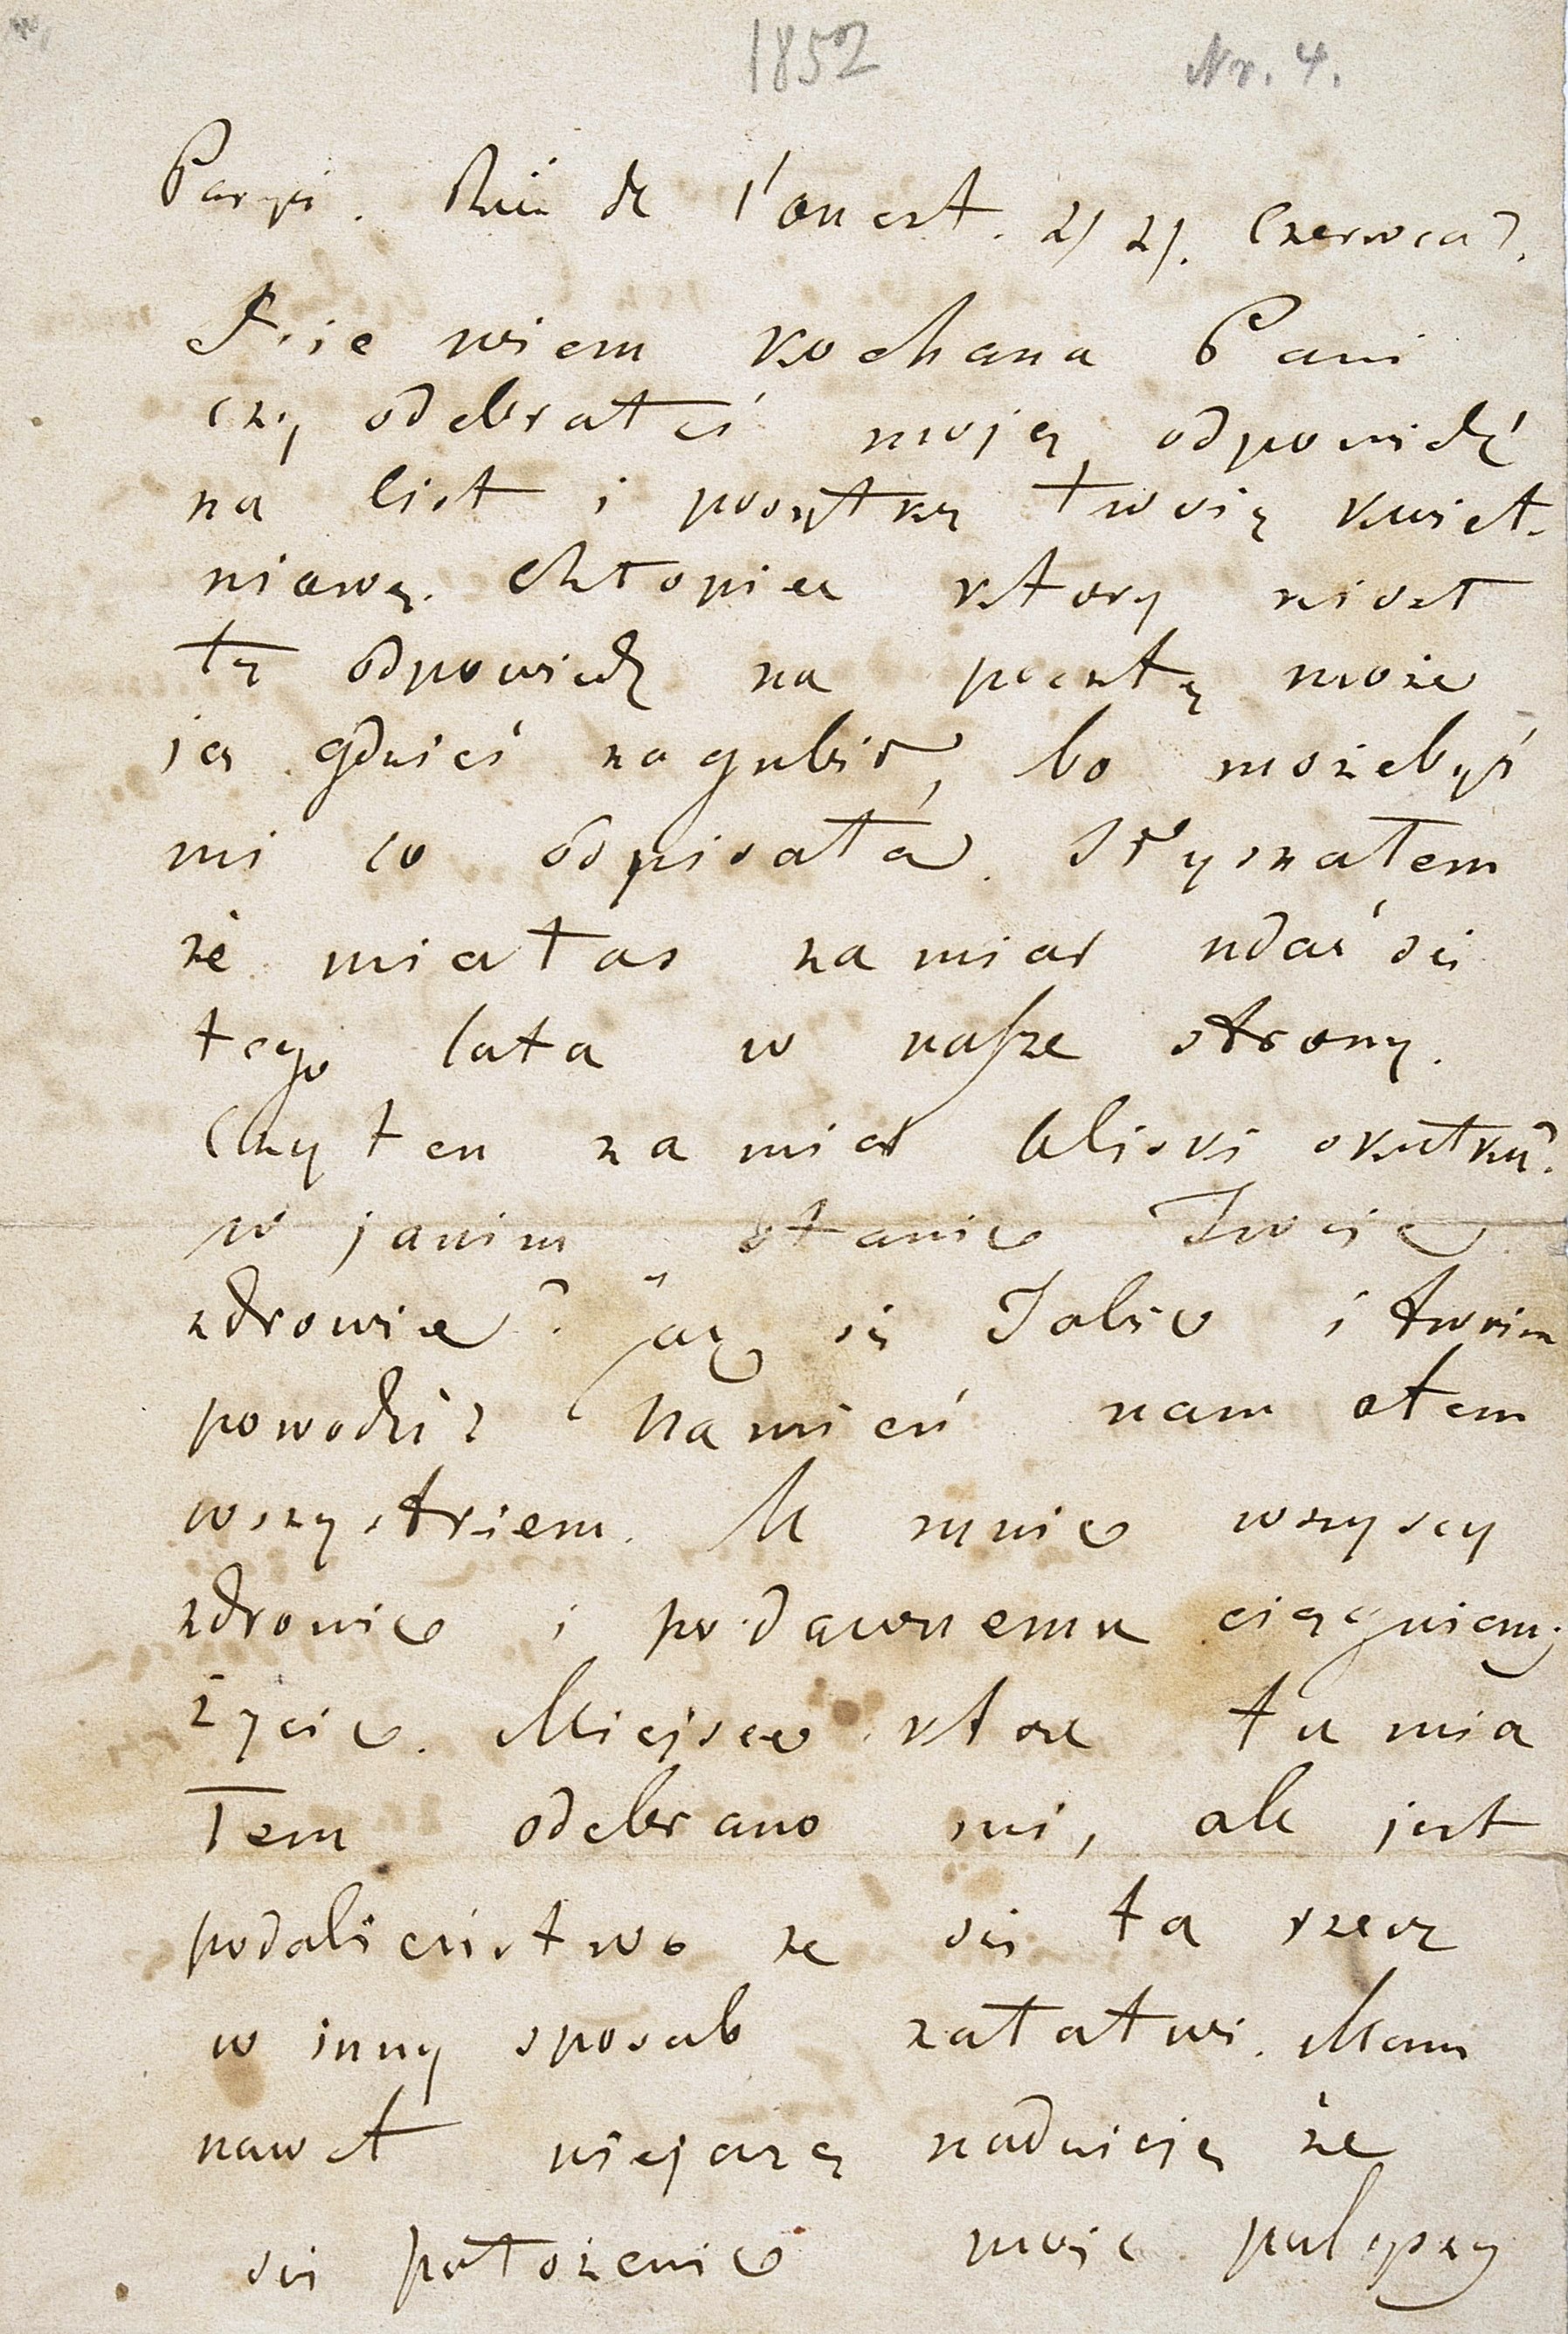 1852 Nr. 4.
Paryż. Rue de l'ouest. 21 21. Czerwca
Nie wiem kochana Pani
czy odebrałaś moją odpowiedź
na list i posyłkę twoię kwiet-
niową. Chłopiec ktory niosł
tę odpowiedz na pocztę może
ją gdzieś zagubił, bo możebyś
mi co odpisała. Słyszałem
że miałas zamiar udać się
tego lata w nasze strony.
Czy ten zamiar bliski skutku?
w jakim stanie Twoie
zdrowie? Jak się Tobie i twoim
powodzi? Namień nam otem
wszystkiem. U mnie wszyscy
zdrowie i podawnemu ciągniemy
życie. Miejsce ktore tu mia
łem odebrano mi, ale jest
podobieństwo że się ta rzecz
w inny sposob załatwi. Mam
nawet niejaką nadzieję że
się położenie moie polepszy